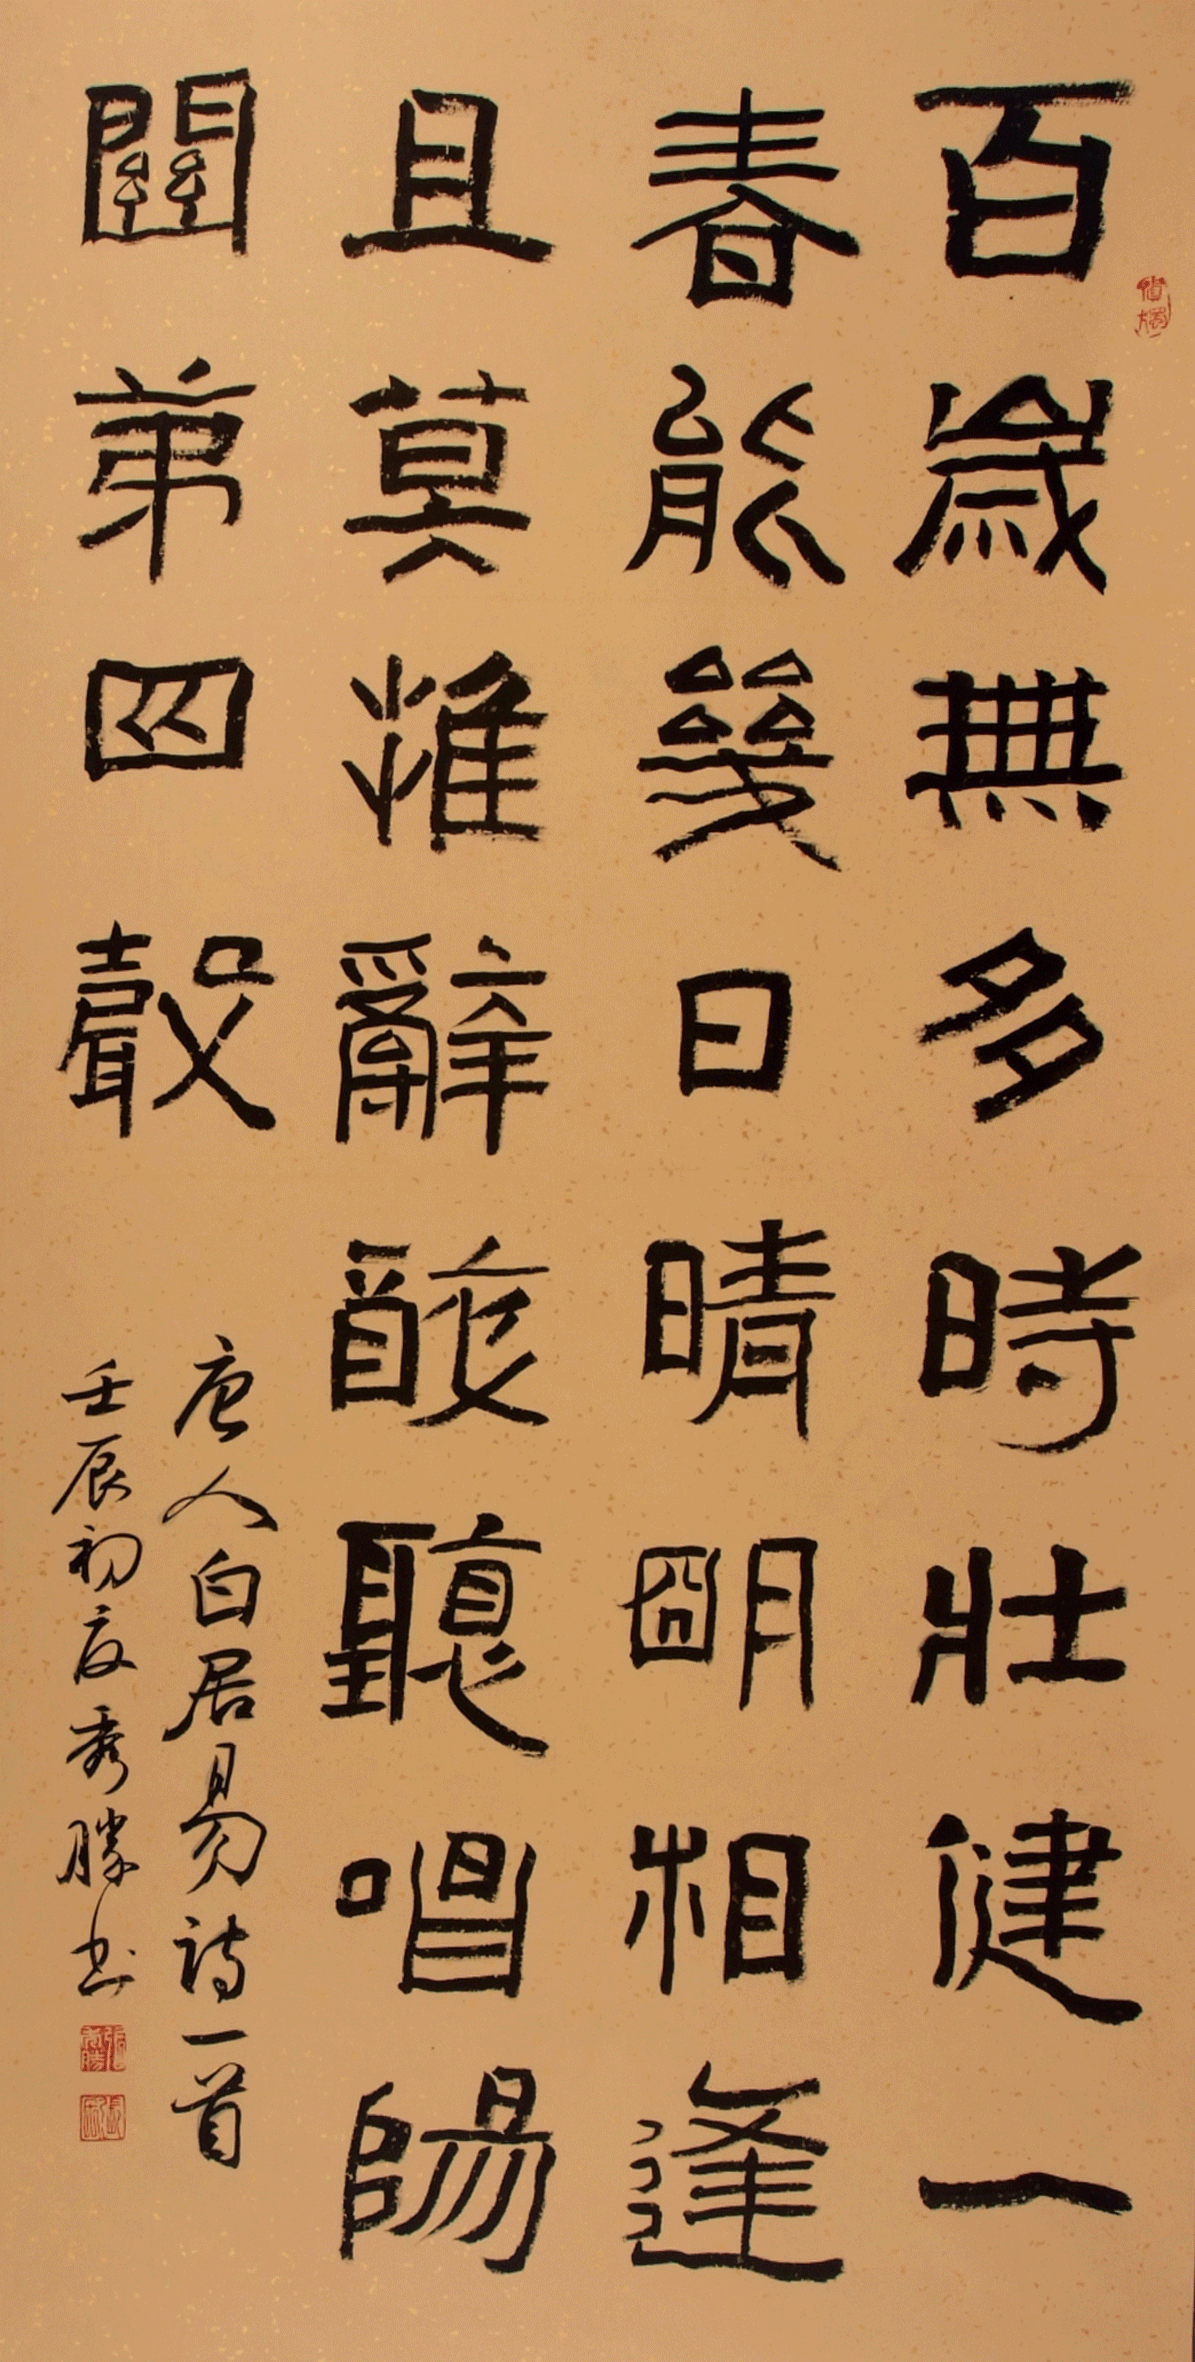 百歲無多時壯健一
春能幾日晴明相逢
且莫推辭醉聽唱陽
關弟四聲
唐人白居易詩一首
壬辰初夏秀勝书